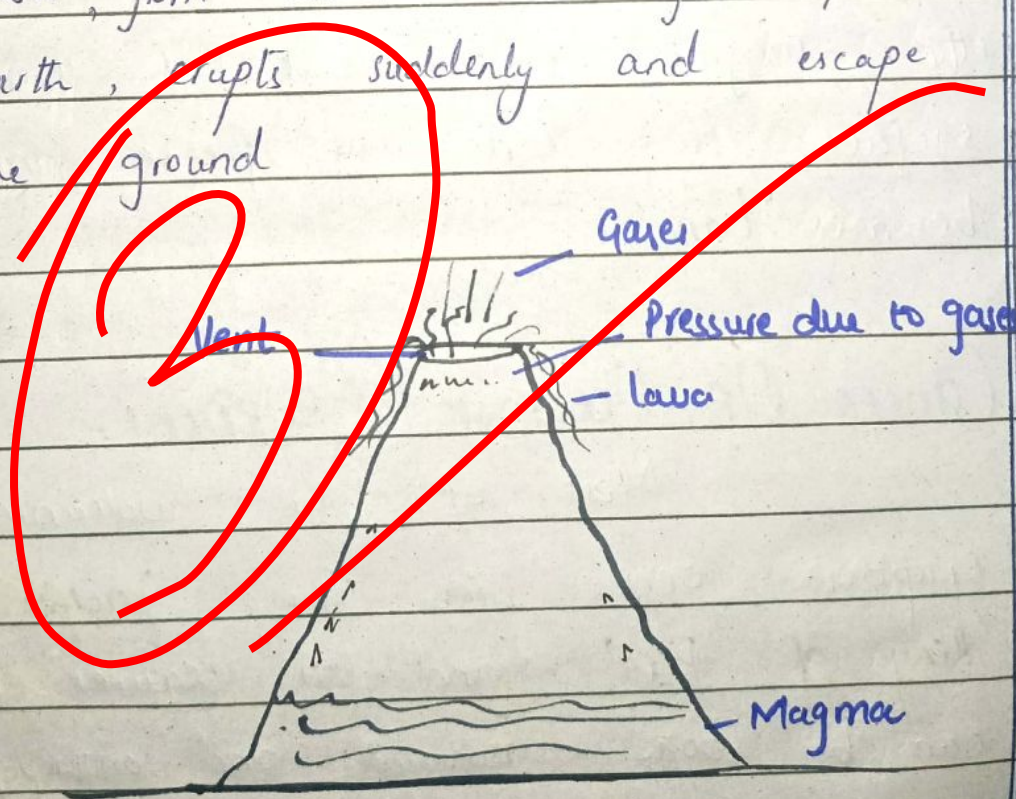 erupts suddenly and escape
ground
3
Gases
Vent
Pressure due to gases
lava
Magma